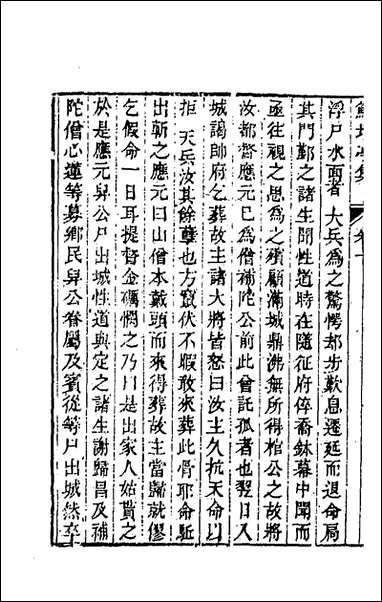 浮尸水面者 大兵爲之驚愕却步歎息遷延而退命局
其門鄞之諸生聞性道時在隨征府倅喬鉢幕中聞而
亟往視之思爲之殯顧滿城鼎沸無所得棺公之故將
汝都督應元已爲僧補陀公前此曾託孤者也翌日入
城謁帥府乞葬故主諸大將皆怒曰汝主久抗天命以
拒 天兵汝其餘孽也方竄伏不暇敢來葬此骨耶命驅
出斬之應元曰山僧本戴頭而來得葬故主當歸就僇
乞假命一日耳提督金礪憫之乃曰是出家人姑貰之
於是應元舁公尸出城性道與定之諸生謝歸昌及補
陀僧心蓮等募鄉民舁公眷屬及賓從等尸出城然卒